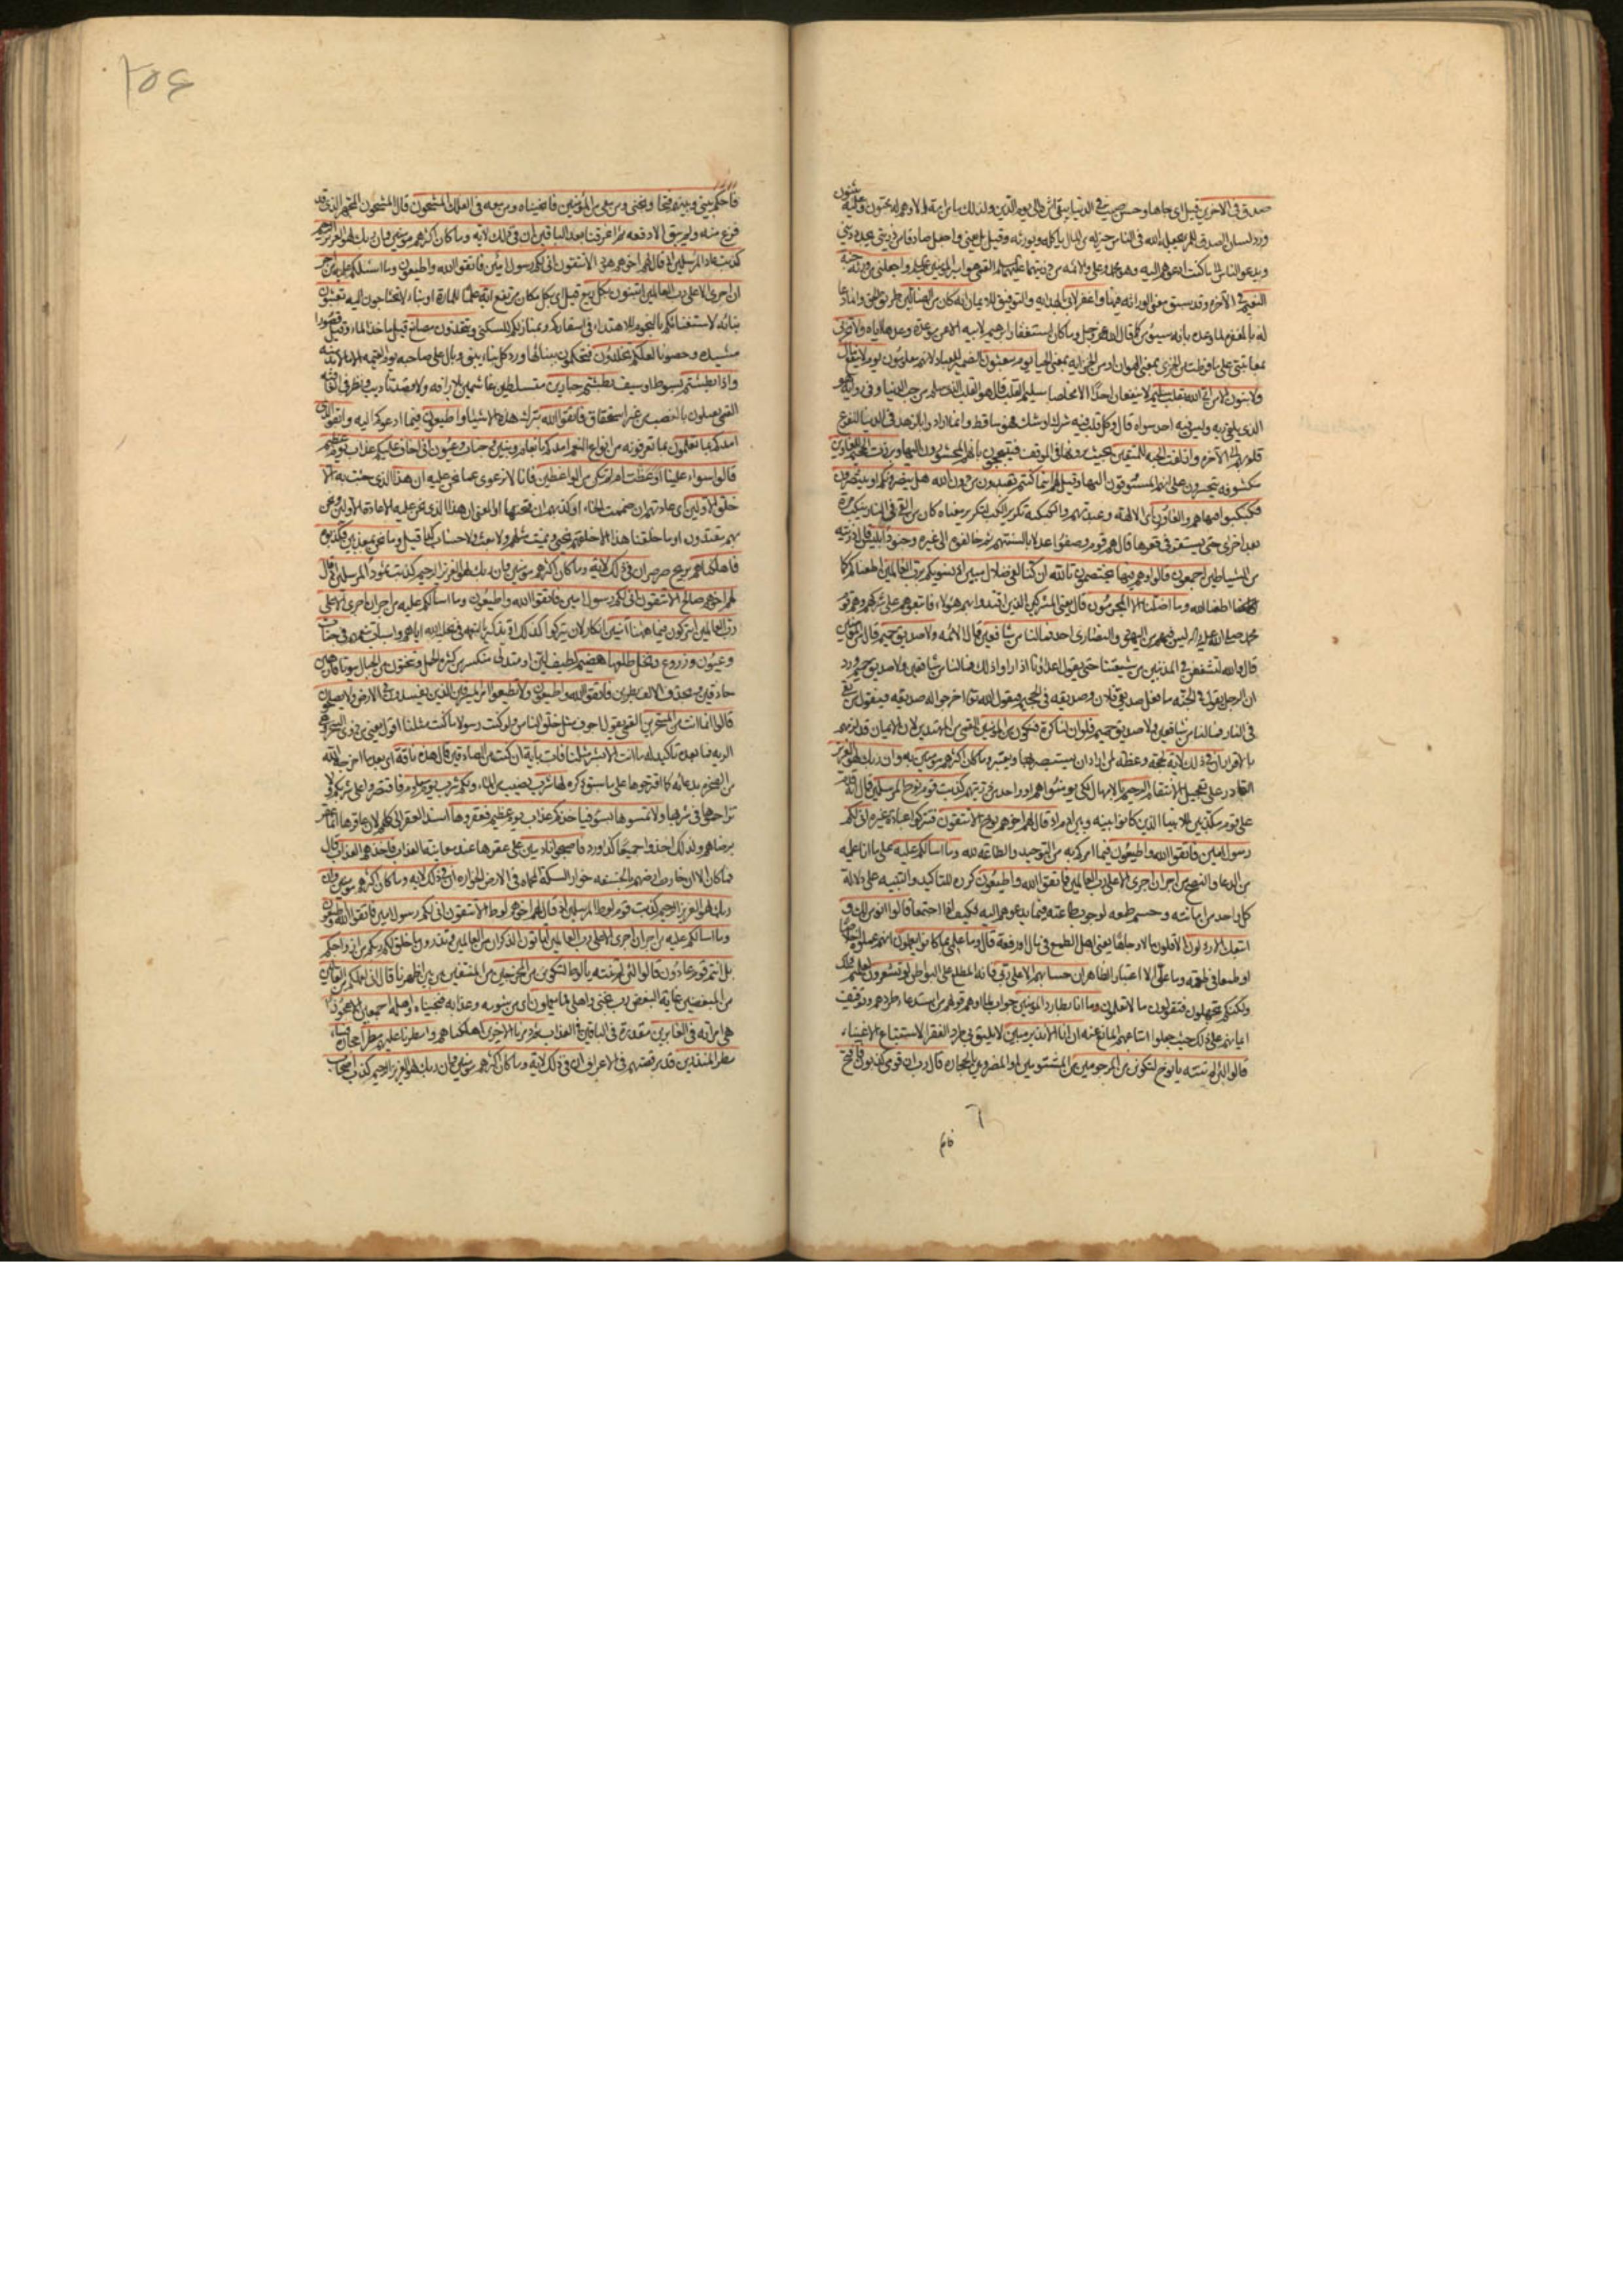 صدق في الاخرين قيل اي جاها وحسن صيت في الدنيا يبقى اثره الى يوم الدين ولذلك ما من امة الا وهم له محبون مثنون عليه
ورد لسان الصدق للمرء يجعله الله في الناس خير له من المال ياكله ويورثه وقيل يعني واجعل صادقا من ذريتي يجدد ديني
ويدعو الناس الى ما كنت ادعوهم اليه وهو محمد وعلي والائمة من ذريتهما عليهم السلم القمي هو امير المؤمنين واجعلني من ورثة جنة
النعيم في الآخرة وقد سبق معنى الوراثة فيها واغفر لابي بالهداية والتوفيق للايمان انه كان من الضالين طريق الحق وانما دعا
له بالمغفرة لما وعده بانه سيؤمن كما قال الله عز وجل وما كان استغفار ابرهيم لابيه الا عن موعدة وعدها اياه ولا تخزني
بمعاتبتي على ما فرطت من الخزي بمعنى الهوان او من الخزاية بمعنى الحياء يوم يبعثون الضمير للعباد لانهم معلومون يوم لا ينفع مال
ولا بنون الا من اتى الله بقلب سليم لا ينفعان احدا الا مخلصا سليم القلب قال هو القلب الذي سلم من حب الدنيا وفي رواية هو
الذي يلقى ربه وليس فيه احد سواه قال وكل قلب فيه شرك او شك فهو ساقط وانما ارادوا بالزهد في الدنيا لتفرغ
قلوبهم الى الآخرة وازلفت الجنة للمتقين بحيث يرونها في الموقف فيتبجحون بانهم المحشورون اليها وبرزت الجحيم للغاوين
مكشوفة يتحسرون على انهم المسوقون اليها وقيل لهم اينما كنتم تعبدون من دون الله هل ينصرونكم او ينتصرون
فكبكبوا فيها هم والغاوون اي الآلهة وعبدتهم والكبكبة تكرير الكب لتكرير معناه كان من القي في النار ينكب مرة
بعد اخرى حتى يستقر في قعرها قال هم قوم وصفوا عدلا بالسنتهم ثم خالفوه الى غيره وجنود ابليس قال ذريته
من الشياطين اجمعون قالوا وهم فيها يختصمون تالله ان كنا لفي ضلال مبين اذ نسويكم برب العالمين اطعناكم كما
اطعنا الله وما اضلنا الا المجرمون قال يعني المشركين الذين اقتدوا بهم هؤلاء فاتبعوهم على شركهم وهم قوم
محمد صلى الله عليه واله ليس فيهم من اليهود والنصارى احد فما لنا من شافعين قال الائمة ولا صديق حميم قال من المؤمنين
قال والله لنشفعن في المذنبين من شيعتنا حتى يقول اعداؤنا اذا راوا ذلك فما لنا من شافعين ولا صديق حميم ورد
ان الرجل يقول في الجنة ما فعل صديقي فلان وصديقه في الجحيم فيقول الله تعالى اخرجوا له صديقه فيقول من بقي
في النار فما لنا من شافعين ولا صديق حميم فلو ان لنا كرة فنكون من المؤمنين القمي من المهتدين لان الايمان قد لزمهم
بالاقرار ان في ذلك لآية لحجة وعظة لمن اراد ان يستبصر بها ويعتبر وما كان اكثرهم مؤمنين به وان ربك لهو العزيز
القادر على تعجيل الانتقام الرحيم بالامهال لكي يؤمنوا هم او واحد من ذريتهم كذبت قوم نوح المرسلين قال انه قدم
على قوم مكذبين للانبياء الذين كانوا بينه وبين ادم اذ قال لهم اخوهم نوح الا تتقون فتتركوا عبادة غيره اني لكم
رسول امين فاتقوا الله واطيعون فيما امركم به من التوحيد والطاعة لله وما اسالكم عليه على ما انا عليه
من الدعاء والنصح من اجر ان اجري الا على رب العالمين فاتقوا الله واطيعون كرره للتاكيد والتنبيه على دلالة
كل واحد من امانته وحسم طمعه لوجوب طاعته فيما يدعوهم اليه فكيف اذا اجتمعا قالوا انؤمن لك و
اتبعك الارذلون الاقلون مالا وجاها قال وما علمي بما كانوا يعملون انهم عملوه اخلاصا
او طمعا في طعمة وما علي الا اعتبار الظاهر ان حسابهم الا على ربي فانه المطلع على البواطن لو تشعرون لعلمتم ذلك
ولكنكم تجهلون فتقولون ما لا تعلمون وما انا بطارد المؤمنين جواب لما اوهم قولهم من استدعاء طردهم وتوقيف
ايمانهم على ذلك حيث جعلوا اتباعهم المانع عنه ان انا الا نذير مبين لا يليق بي طرد الفقراء لاستتباع الاغنياء
قالوا لئن لم تنته يا نوح لتكونن من المرجومين من المشتومين او المضروبين بالحجارة قال رب ان قومي كذبون فافتح
٢٥٤
فاحكم بيني وبينهم فتحا ونجني ومن معي من المؤمنين فانجيناه ومن معه في الفلك المشحون قال المشحون المجهز الذي قد
فرغ منه ولم يبق الا دفعه ثم اغرقنا بعد الباقين ان في ذلك لآية وما كان اكثرهم مؤمنين وان ربك لهو العزيز الرحيم
كذبت عاد المرسلين اذ قال لهم اخوهم هود الا تتقون اني لكم رسول امين فاتقوا الله واطيعون وما اسئلكم عليه من اجر
ان اجري الا على رب العالمين اتبنون بكل ريع قيل اي بكل مكان مرتفع آية علما للمارة او بناء لا تحتاجون اليه تعبثون
ببنائه لاستغنائكم بالنجوم للاهتداء في اسفاركم وبمنازلكم للسكنى وتتخذون مصانع قيل ماخذ الماء وقيل قصورا
مشيدة وحصونا لعلكم تخلدون فتحكمون بنيانها ورد كل بناء يبنى وبال على صاحبه يوم القيمة الا ما لا بد منه
واذا بطشتم بسوط او سيف بطشتم جبارين متسلطين غاشمين بلا رافة ولا قصد تاديب ونظر في العاقبة
القمي يقتلون بالغضب من غير استحقاق فاتقوا الله بترك هذه الاشياء واطيعون فيما ادعوكم اليه واتقوا الذي
امدكم بما تعلمون بما تعرفونه من انواع النعم امدكم بانعام وبنين وجنات وعيون اني اخاف عليكم عذاب يوم عظيم
قالوا سواء علينا اوعظت ام لم تكن من الواعظين فانا لا نرعوي عما نحن عليه ان هذا الذي جئت به الا
خلق الاولين اي عادتهم ان ضممت الخاء او كذبهم ان فتحتها او المعنى ان هذا الذي نحن عليه الا عادة الاولين ونحن
بهم مقتدون او ما خلقنا هذا الا خلقهم نحيى ونميت مثلهم ولا بعث ولا حساب كما قيل وما نحن بمعذبين فكذبوه
فاهلكناهم بريح صرصر ان في ذلك لآية وما كان اكثرهم مؤمنين وان ربك لهو العزيز الرحيم كذبت ثمود المرسلين اذ قال
لهم اخوهم صالح الا تتقون اني لكم رسول امين فاتقوا الله واطيعون وما اسالكم عليه من اجر ان اجري الا على
رب العالمين اتتركون فيما ههنا آمنين انكار لان يتركوا كذلك او تذكير بالنعمة في تخلية الله اياهم واسباب تنعمهم في جنات
وعيون وزروع ونخل طلعها هضيم لطيف لين او متدل متكسر من كثرة الحمل وتنحتون من الجبال بيوتا فارهين
حاذقين وبحذف الالف بطرين فاتقوا الله واطيعون ولا تطيعوا امر المسرفين الذين يفسدون في الارض ولا يصلحون
قالوا انما انت من المسحرين القمي يقول اجوف مثل خلق الناس ولو كنت رسولا ما كنت مثلنا اقول يعني من ذوي السحر وهي
الرية فما بعده تاكيد له ما انت الا بشر مثلنا فات بآية ان كنت من الصادقين قال هذه ناقة اي بعد ما اخرجها الله
من الصخرة بدعائه كما اقترحوها على ما سبق ذكره لها شرب نصيب من الماء ولكم شرب يوم معلوم فاقتصروا على شربكم ولا
تزاحموها في شربها ولا تمسوها بسوء فياخذكم عذاب يوم عظيم فعقروها اسند العقر الى كلهم لان عاقرها انما عقر
برضاهم ولذلك اخذوا جميعا كذا ورد فاصبحوا نادمين على عقرها عند معاينة العذاب فاخذهم العذاب قال
فما كان الا ان خارت ارضهم بالخسفة خوار السكة المحماة في الارض الخوارة ان في ذلك لآية وما كان اكثرهم مؤمنين وان
ربك لهو العزيز الرحيم كذبت قوم لوط المرسلين اذ قال لهم اخوهم لوط الا تتقون اني لكم رسول امين فاتقوا الله واطيعون
وما اسالكم عليه من اجر ان اجري الا على رب العالمين اتاتون الذكران من العالمين وتذرون ما خلق لكم ربكم من ازواجكم
بل انتم قوم عادون قالوا لئن لم تنته يا لوط لتكونن من المخرجين من المنفيين من بين اظهرنا قال اني لعملكم من القالين
من المبغضين غاية البغض رب نجني واهلي مما يعملون اي من شومه وعذابه فنجيناه واهله اجمعين الا عجوزا
هي امراته في الغابرين مقدرة في الباقين في العذاب ثم دمرنا الآخرين اهلكناهم وامطرنا عليهم مطرا حجارة فساء
مطر المنذرين قد مر قصتهم في الاعراف ان في ذلك لآية وما كان اكثرهم مؤمنين وان ربك لهو العزيز الرحيم كذب اصحاب